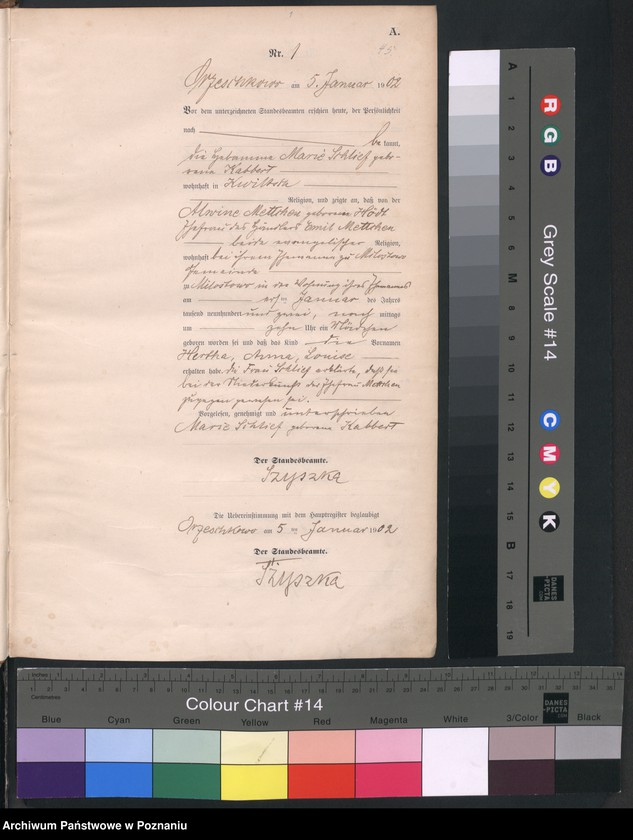 A.
Nr. 1
Orzeschkowo am 5. Januar 1902
Vor dem unterzeichneten Standesbeamten erschien heute, der Persönlichkeit
nach
be kannt,
die Hebamme Marie Schlief gebo-
rene Kabbert
wohnhaft in Kwiltsch
Religion, und zeigte an, daß von der
Alwine Mettchen geborenen Hödt
Ehefrau des Händlers Emil Mettchen
beide evangelischer Religion,
wohnhaft bei ihrem Ehemanne zu Milostowo
Gemeinde
zu Milostowo in der Wohnung ihres Ehemannes
am Januar des Jahres
tausend neunhundert und zwei, nach mittags
um zehn Uhr ein Mädchen
geboren worden sei und daß das Kind die Vornamen
Hertha, Anna, Louise
erhalten habe. Die Frau Schlief erklärte, daß sie
bei der Niederkunft der Ehefrau Mettchen
zugegen gewesen sei.
Vorgelesen, genehmigt und unterschrieben
Marie Schlief geborene Kabbert
Der Standesbeamte.
Szyszka
Die Uebereinstimmung mit dem Hauptregister beglaubigt
Orzeschkowo am 5 ten Januar 1902
Der Standesbeamte.
Szyszka
A 1 2 3 4 5 M 8 9 10 11 12 13 14 15 B 17 18 19
R G B
Grey Scale #14
C M Y K
DANES
-PICTA
.COM
Inches
Centimetres
Colour Chart #14
DANES
-PICTA
.COM
Blue Cyan Green Yellow Red Magenta White 3/Color Black
Archiwum Państwowe w Poznaniu